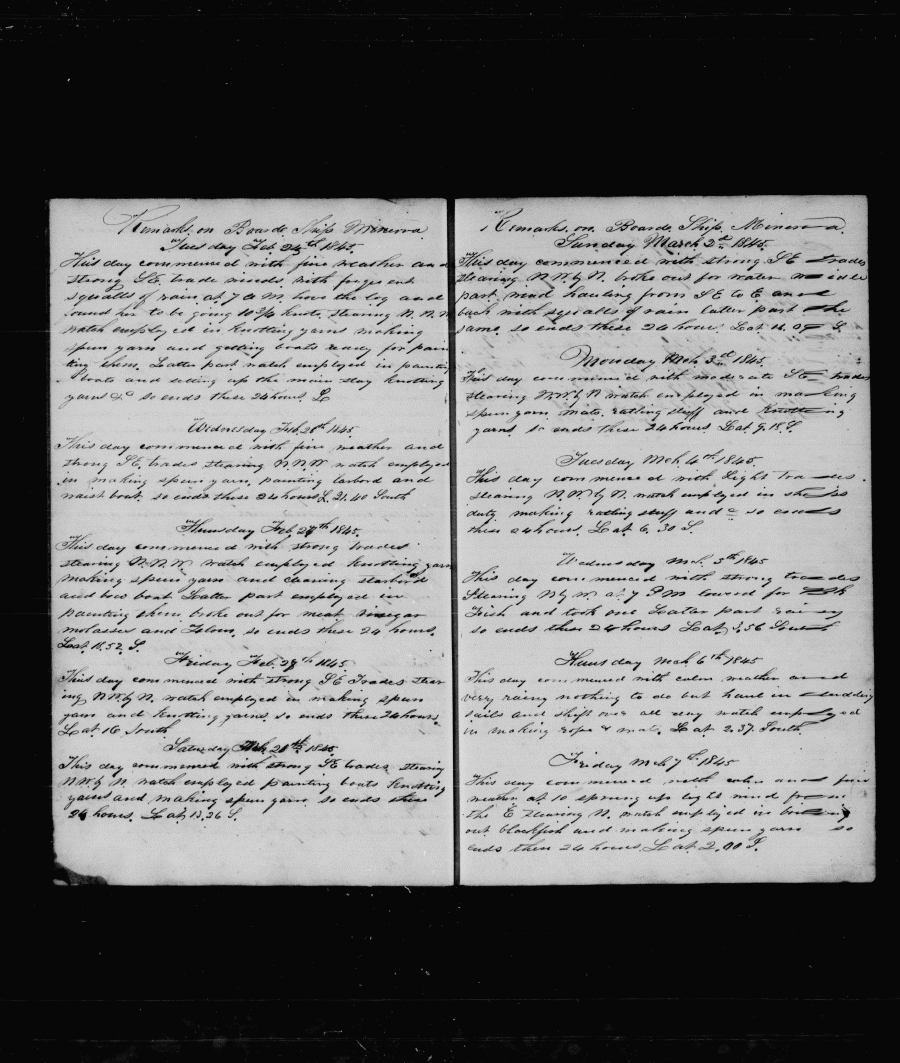 Remarks on Board Ship Minerva
Tuesday Feb 24th 1845
This day commenced with fine weather and
strong SE trade winds with frequent
squalls of rain at 7 A M. hove the log and
found her to be going 10 knots, stearing N.N.W
watch employed in knotting yarns making
spun yarn and getting boats ready for pain
ting them. Latter part watch employed in painting
boats and setting up the main stay knotting
yarns &c so ends these 24 hours. L
Wednesday Feb. 26th 1845
This day commenced with fine weather and
strong SE, trades stearing N.N.W watch employed
in making spun yarn, painting larbord and
waist boat. so ends these 24 hours L. 21.40 South
Thursday Feb 27th 1845.
This day commenced with strong trades
stearing N.N.W. watch employed knotting yarn
making spun yarn and cleaning starbord
and bow boat Latter part employed in
painting them broke out for meat vinegar
molasses and Flour, so ends these 24 hours.
Lat. 18.52. S.
Friday Feb. 28th 1845
This day commenced with strong SE Trades stear
ing NW by N. watch employed in making spun
yarn and knotting yarns. so ends these 24 hours
Lat 16 South
Saturday 1845
This day commenced with strong SE trades stearing
NW by N watch employed painting boats knotting
yarns and making spun yarn so ends these
24 hours. Lat, 13.26 S.
Remarks. on. Board. Ship. Minerva.
Sunday March 2nd 1845.
This day commenced with strong SE trades
stearing. N.W by N. broke out for water middle
part. wind hauling from SE to E and
back with squalls of rain latter part the
same so ends these 24 hours. Lat 11.09 S
Monday Mch 3d 1845
This day commenced with moderate SE trades
stearing NW by N watch employed in making
spun yarn mats. ratling stuff and knotting
yarns. so ends these 24 hours Lat 9.18 S.
Tuesday Mch 4th 1845.
This day commenced with Light Trades.
stearing N.W by N. watch employed in ships
duty making ratling stuff and c so ends
these 24 hours. Lat 6.30 S
Wednesday Mch. 5th 1845
This day commenced with strong trades
Stearing N by W. at 7 P M lowered for
Fish and took one Latter part rainy
so ends these 24 hours Lat, 3.56 South
Thursday Mch 6th 1845
This day commenced with calm weather and
very rainy nothing to do but haul in studding
sails and shift over all day watch employed
in making rope & mats. Lat 2.37. South.
Friday Mch 7th 1845
This day commenced with calm and fine
weather at 10 sprung up light wind from
the E stearing N. watch employed in
out blackfish and making spun yarn so
ends these 24 hours. Lat 2.00 S.